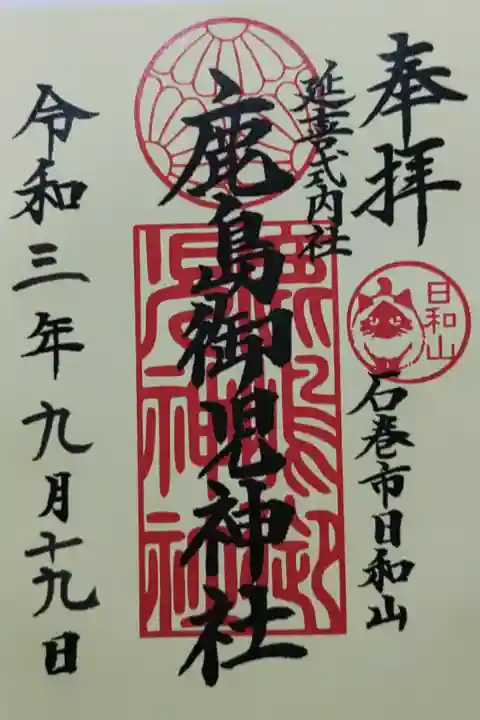 奉拝
延喜式内社
日和山
石巻市日和山
鹿島御児神社
鹿嶋御児神社
令和三年九月十九日